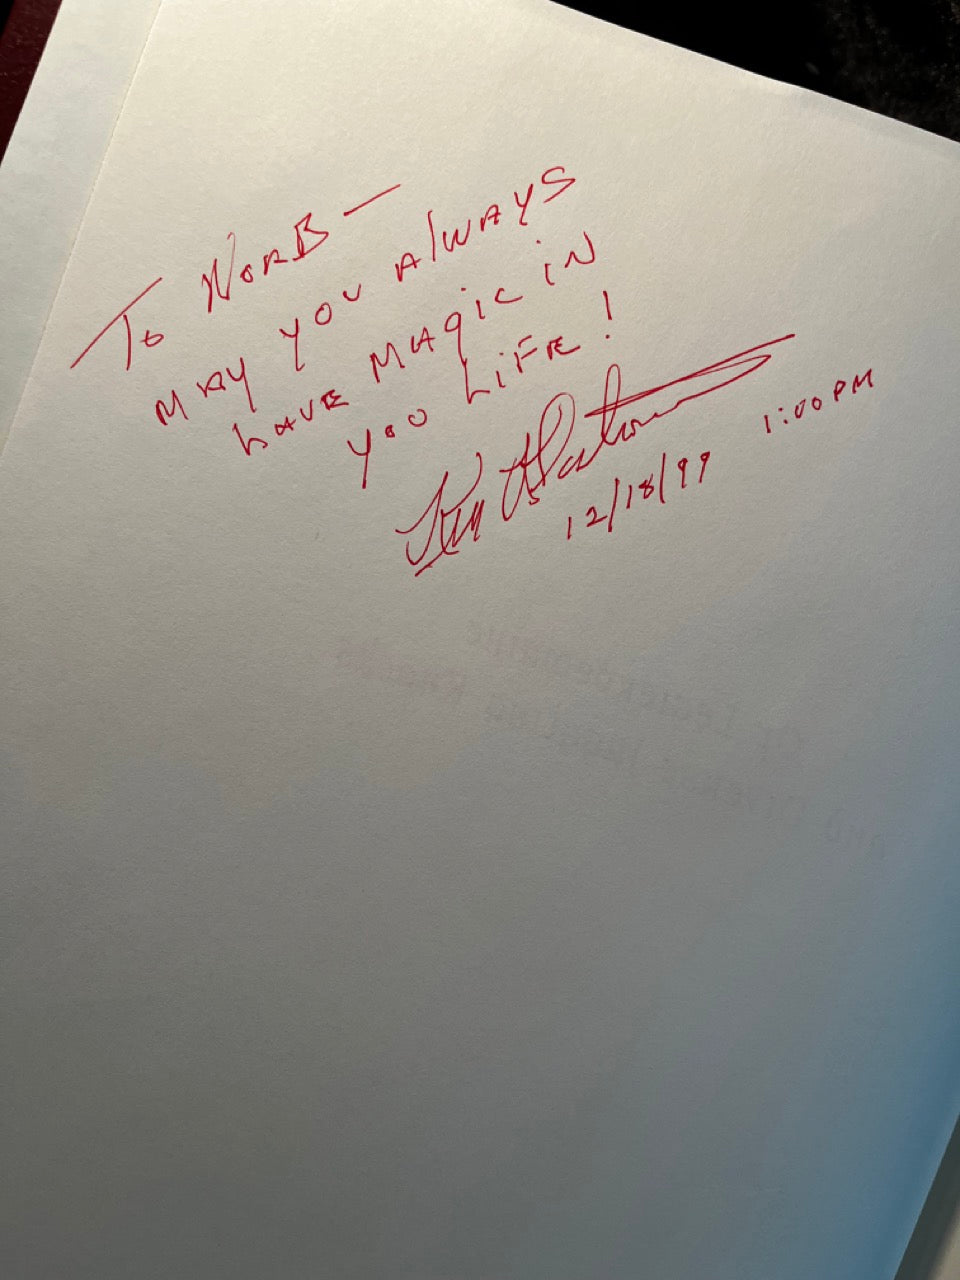 To NORB —
MAY YOU AlWAYS
hAVE MAgic iN
you LiFE!
12/18/99 1:00 PM